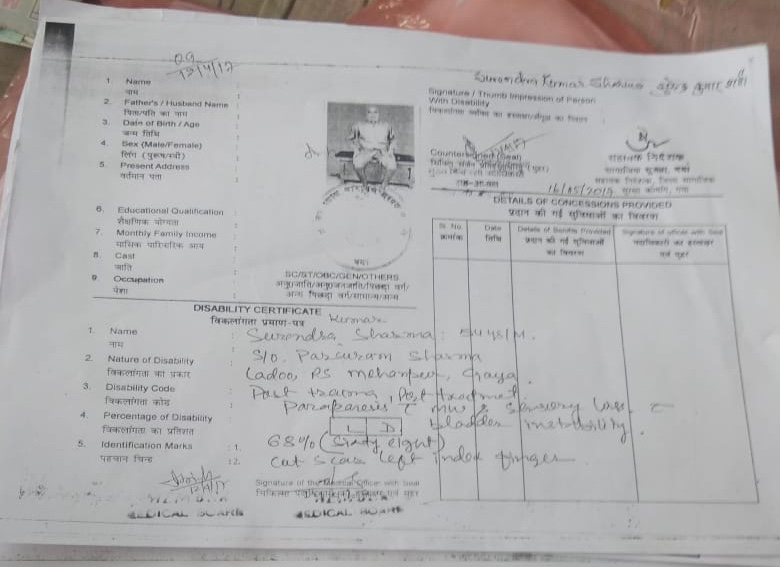 09
12/4/17
1. Name :
नाम
2. Father's / Husband Name :
पिता/पति का नाम
3. Date of Birth / Age :
जन्म तिथि
4. Sex (Male/Female) :
लिंग (पुरूष/स्त्री)
5. Present Address :
वर्तमान पता
6. Educational Qualification :
शैक्षणिक योग्यता
7. Monthly Family Income :
मासिक पारिवारिक आय
8. Cast :
जाति
9. Occupation :
पेशा
SC/ST/OBC/GEN/OTHERS
अनुजाति/अनुजनजाति/पिछड़ा वर्ग/
अन्य पिछड़ा वर्ग/सामान्य/अन्य
DISABILITY CERTIFICATE
विकलांगता प्रमाण-पत्र
Kumar
1. Name : Surendra Sharma : 54 yrs/M.
नाम
S/o. Parsuram Sharma
2. Nature of Disability :
विकलांगता का प्रकार
Ladoo, PS Mohanpur, Gaya.
3. Disability Code :
विकलांगता कोड
Post trauma, Post treatment
Paraparesis c & Sensory loss c
4. Percentage of Disability : L D bladder
विकलांगता का प्रतिशत
68% (Sixty eight)
5. Identification Marks : 1.
पहचान चिन्ह : 2. Cut scar left index finger
12/4/17
Signature of the Medical Officer with Seal
MEDICAL BOARD
MEDICAL BOARD
Surendra Kumar Sharma
Signature / Thumb Impression of Person
With Disability
Countersigned (Seal)
सहायक निदेशक
16/05/2019
DETAILS OF CONCESSIONS PROVIDED
प्रदान की गई सुविधाओं का विवरण
Sl. No. Date Details of Benefits Provided Signature of officer with Seal
क्रमांक तिथि प्रदान की गई सुविधाओं पदाधिकारी का हस्ताक्षर
का विवरण एवं मुहर